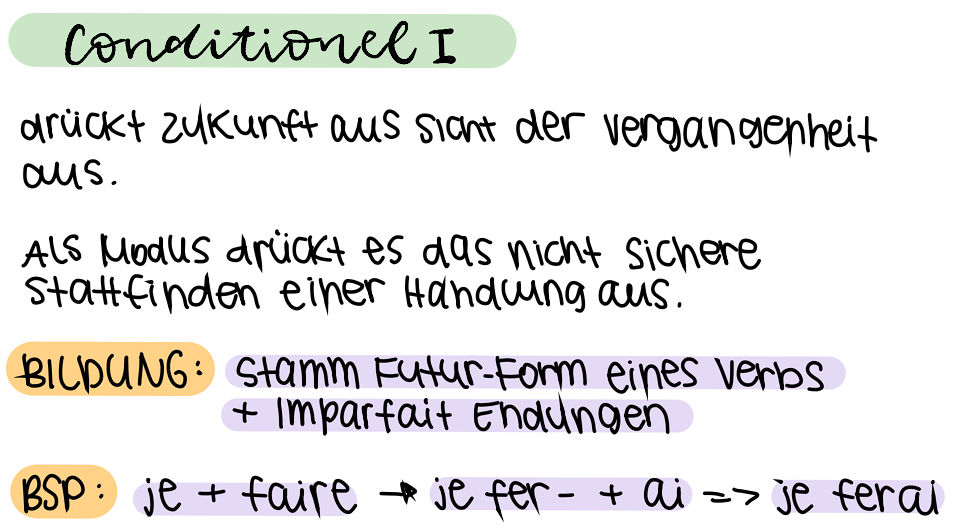 Conditionel I
drückt Zukunft aus Sicht der Vergangenheit
aus.
Als Modus drückt es das nicht sichere
Stattfinden einer Handlung aus.
BILDUNG: Stamm Futur-Form eines Verbs
+ Imparfait Endungen
BSP: je + faire → je fer- + ai => je ferai